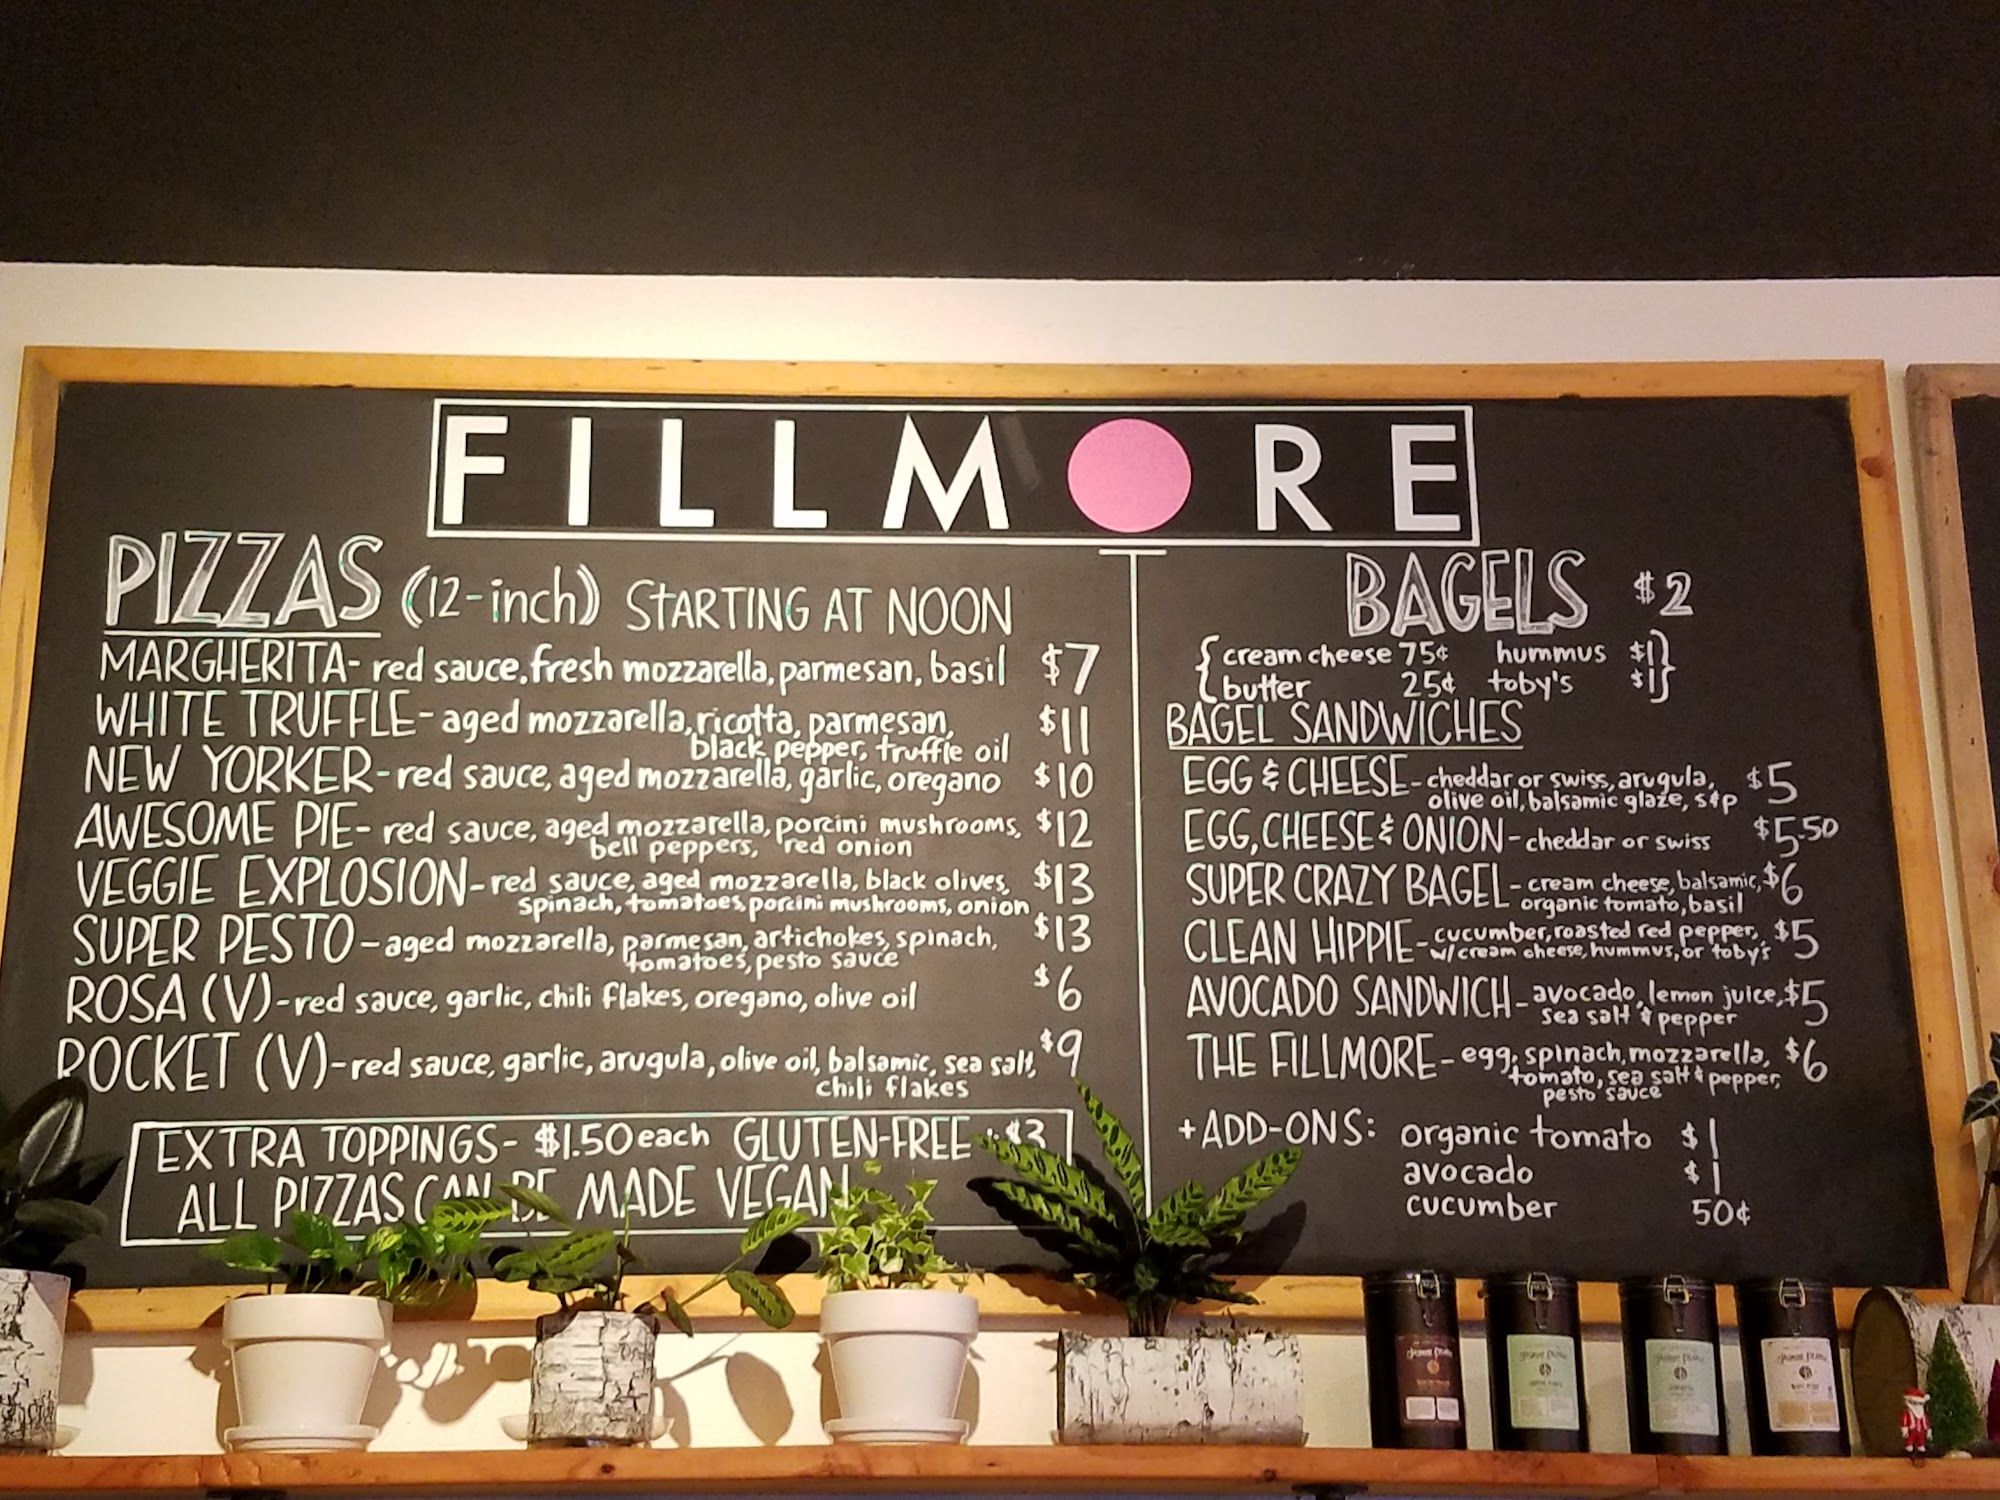 FILLMORE
PIZZAS (12-inch) STARTING AT NOON
MARGHERITA- red sauce, fresh mozzarella, parmesan, basil $7
WHITE TRUFFLE- aged mozzarella, ricotta, parmesan, $11
black pepper, truffle oil
NEW YORKER- red sauce, aged mozzarella, garlic, oregano $10
AWESOME PIE- red sauce, aged mozzarella, porcini mushrooms, $12
bell peppers, red onion
VEGGIE EXPLOSION- red sauce, aged mozzarella, black olives, $13
spinach, tomatoes, porcini mushrooms, onion
SUPER PESTO- aged mozzarella, parmesan, artichokes, spinach, $13
tomatoes, pesto sauce
ROSA (V)- red sauce, garlic, chili flakes, oregano, olive oil $6
ROCKET (V)- red sauce, garlic, arugula, olive oil, balsamic, sea salt, $9
chili flakes
EXTRA TOPPINGS- $1.50 each GLUTEN-FREE +$3
ALL PIZZAS CAN BE MADE VEGAN
BAGELS $2
{cream cheese 75¢ hummus $1}
{butter 25¢ toby's $1}
BAGEL SANDWICHES
EGG & CHEESE- cheddar or swiss, arugula, $5
olive oil, balsamic glaze, s&p
EGG, CHEESE & ONION- cheddar or swiss $5.50
SUPER CRAZY BAGEL- cream cheese, balsamic, $6
organic tomato, basil
CLEAN HIPPIE- cucumber, roasted red pepper, $5
w/cream cheese, hummus, or toby's
AVOCADO SANDWICH- avocado, lemon juice, $5
sea salt & pepper
THE FILLMORE- egg, spinach, mozzarella, $6
tomato, sea salt & pepper,
pesto sauce
+ADD-ONS: organic tomato $1
avocado $1
cucumber 50¢